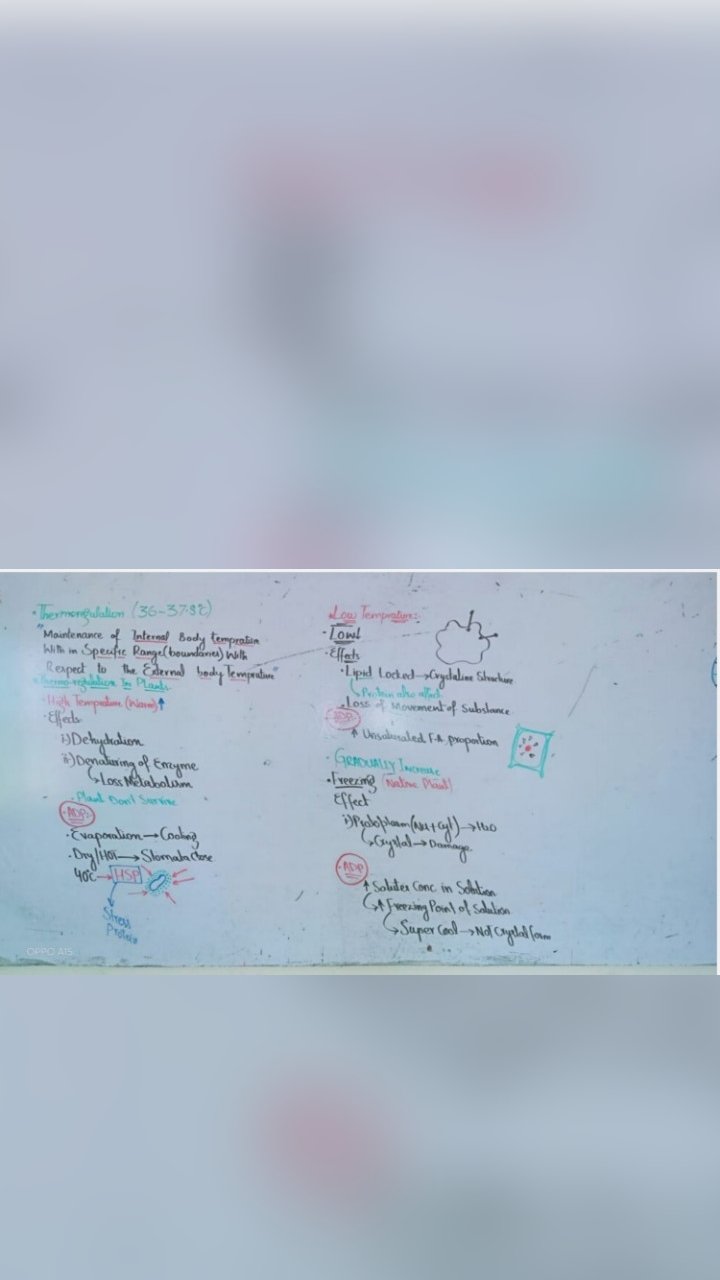 · Thermoregulation (36-37.8℃)
"Maintenance of Internal Body tempratire
With in Specific Range(boundaries) With
Respect to the External body Temprature"
· Thermo-regulation In Plants.
· High Temprature (Warm) ↑
· Effects
i) Dehydration
ii) Denaturing of Enzyme
↳ Loss Metabolism
· Plant Don't Survive
· ADP:
· Evaporation → Cooling
· Dry/HOT → Stomata Close
40℃ → HSP
Stress
Protein
Low Temprature:-
· Low!
· Effects
· Lipid Locked → Crystaline Structure
↳ Protein also affect
· Loss of Movement of Substance
ADP:
↑ Unsaturated F.A proportion
· GRADUALLY Increase
· Freezing (Native Plant)
Effect
i) Protoplasm (Nu + Cyt) → H2O
↳ Crystal → Damage
· ADP
↑ Solutes Conc in Solution
↳ ↑ Freezing Point of Solution
↳ Super Cool → Not Crystal form
OPPO A15